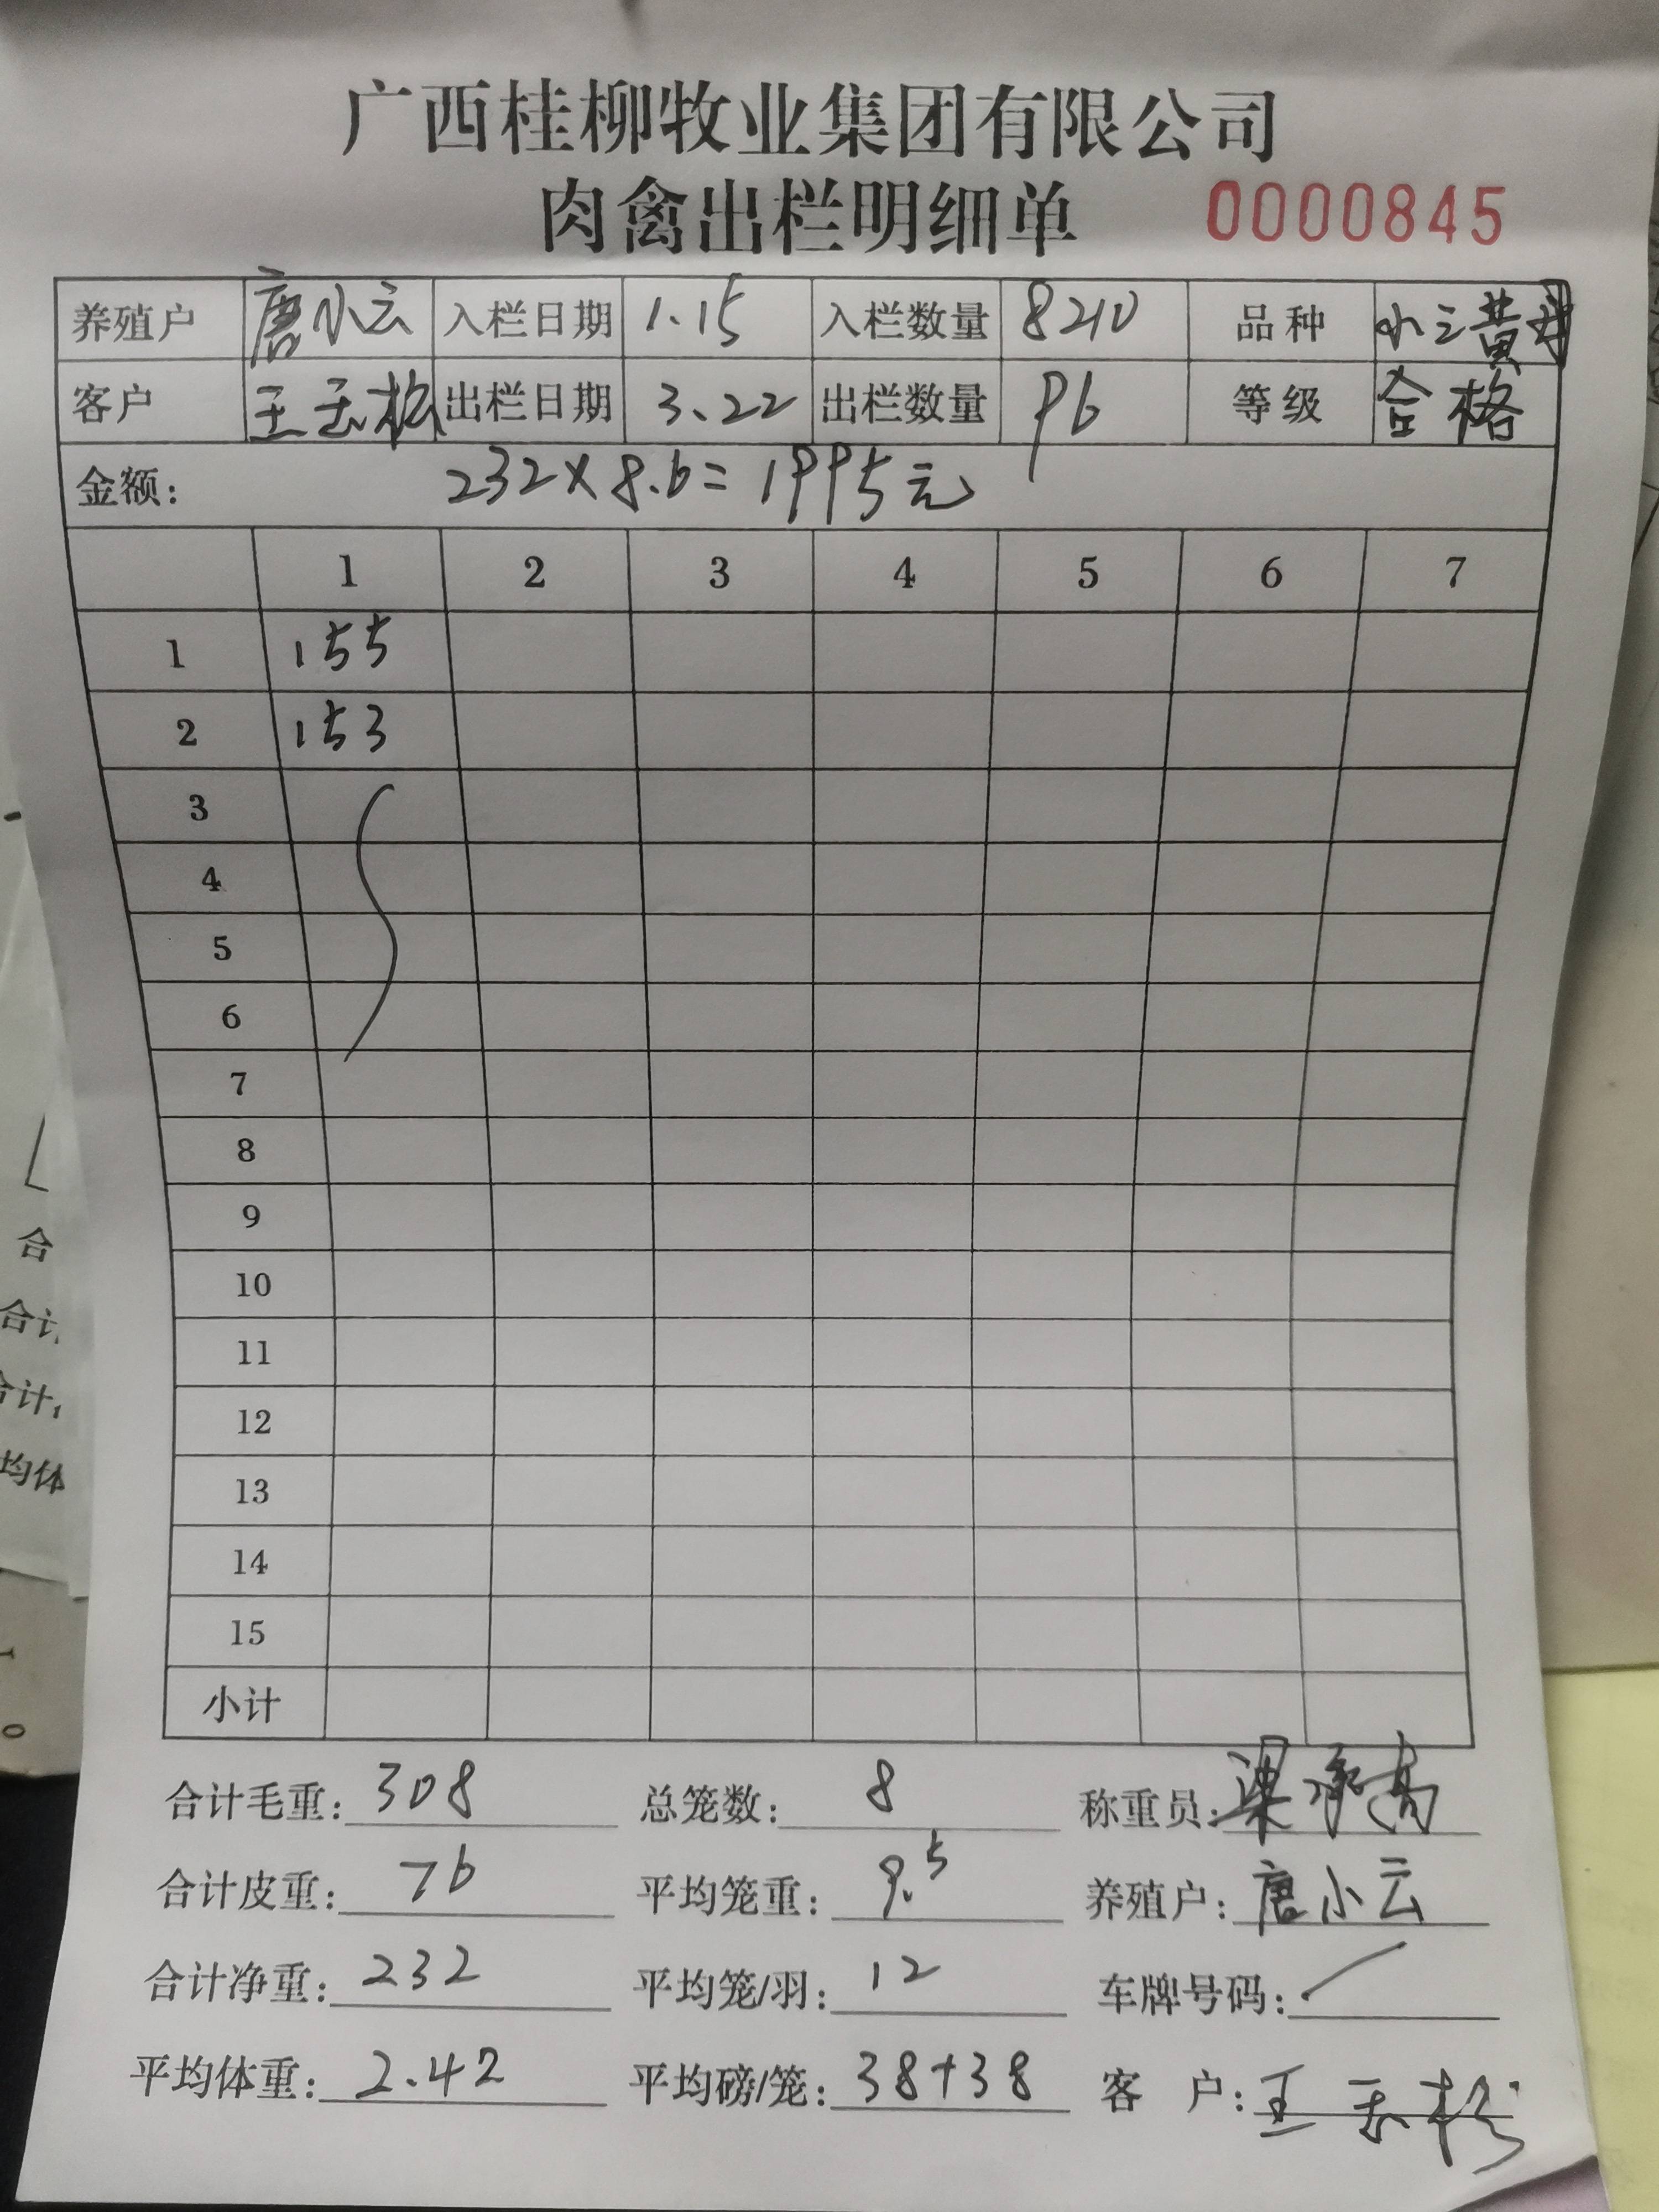 广西桂柳牧业集团有限公司
肉禽出栏明细单 0000845
养殖户 唐小云 入栏日期 1.15 入栏数量 8210 品种 小三黄母
客户 王玉松 出栏日期 3.22 出栏数量 96 等级 合格
金额: 232×8.6=1995元
1 2 3 4 5 6 7
1 155
2 153
3
4
5
6
7
8
9
10
11
12
13
14
15
小计
合计毛重: 308 总笼数: 8 称重员: 梁承高
合计皮重: 76 平均笼重: 9.5 养殖户: 唐小云
合计净重: 232 平均笼/羽: 12 车牌号码: /
平均体重: 2.42 平均磅/笼: 38+38 客户: 王玉松
合
合计
合计
均体